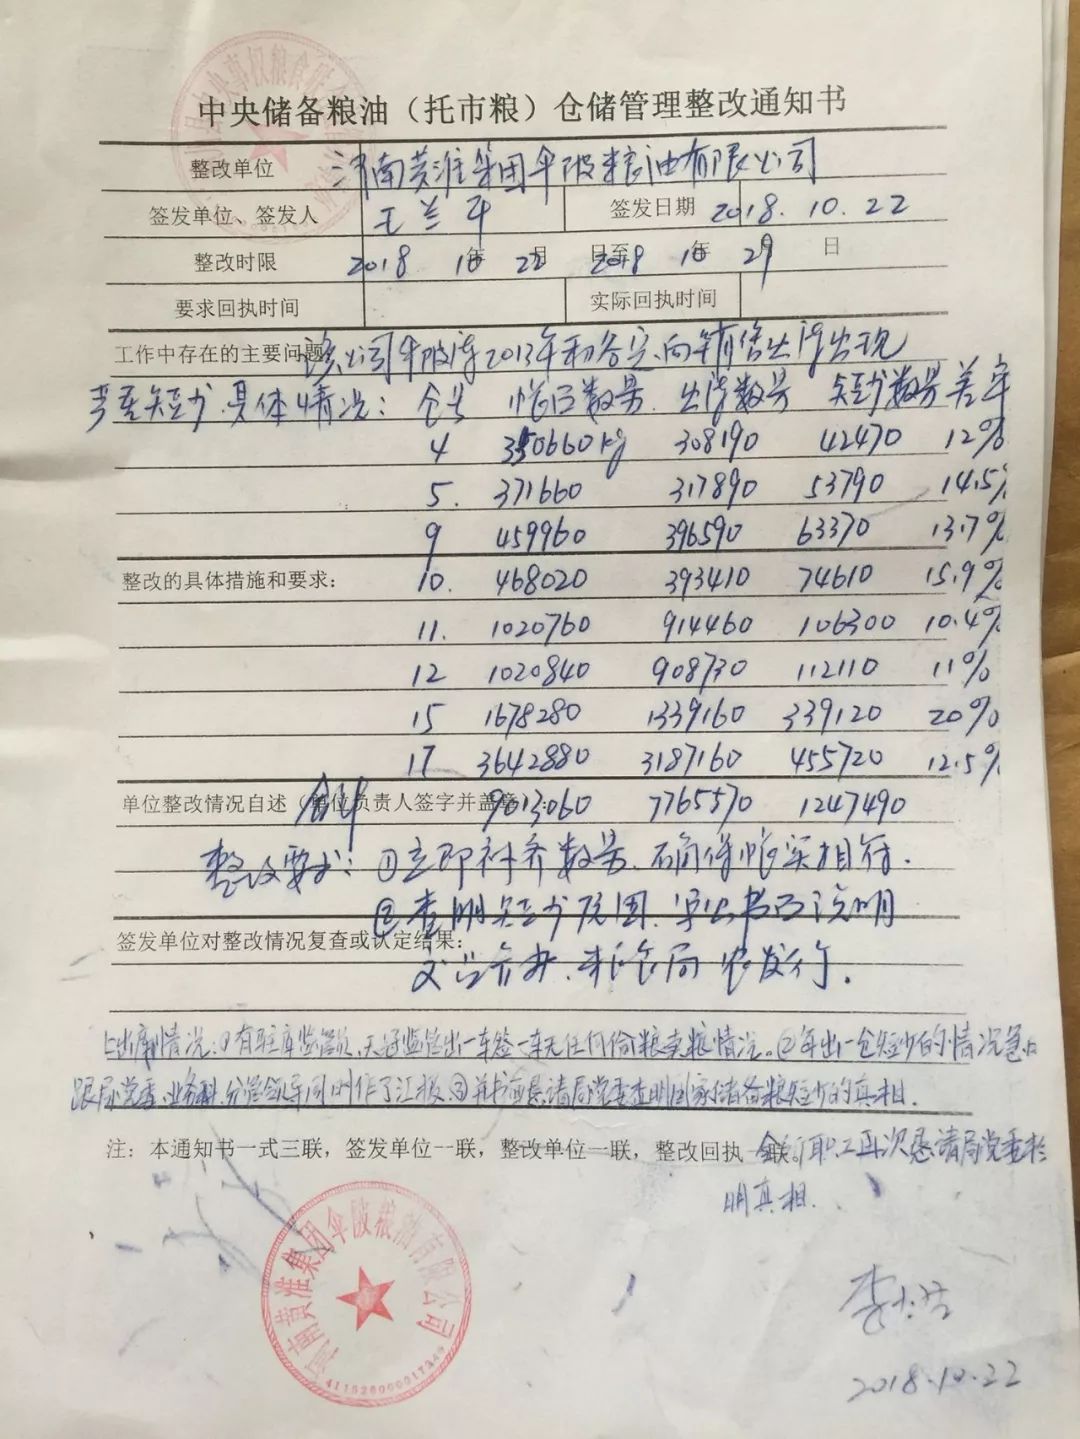 中央储备粮油（托市粮）仓储管理整改通知书
整改单位 河南黄淮集团伞陂粮油有限公司
签发单位、签发人 王兰平 签发日期 2018.10.22
整改时限 2018年10月22日至2018年10月29日
要求回执时间 实际回执时间
工作中存在的主要问题 该公司伞陂库2013年 定向销售出库出现
严重短少具体情况：仓号 帐面数量 出库数量 短少数量 差率
4 350660kg 308190 42470 12%
5. 371660 317890 53790 14.5%
9 459960 396590 63370 13.7%
整改的具体措施和要求： 10. 468020 393410 74610 15.9%
11. 1020760 914460 106300 10.4%
12 1020840 908730 112110 11%
15 1678280 1339160 339120 20%
17 3642880 3187160 455720 12.5%
单位整改情况自述（单位负责人签字并盖章）：
合计 9013060 7765570 1247490
整改要求：①立即补齐数量.确保帐实相符.
②查明短少原因.写出书面说明
签发单位对整改情况复查或认定结果：
.粮食局 农发行.
出库情况：①有驻库监管员,天天监管出一车签一车无任何偷粮卖粮情况。②每出一仓短少的情况
跟局党委.业务科.分管领导同时作了汇报.③并书面恳请局党委查明国家储备粮短少的真相.
注：本通知书一式三联，签发单位一联，整改单位一联，整改回执一联。
职工再次恳请局党委
明真相.
河南黄淮集团伞陂粮油有限公司
李
2018.10.22